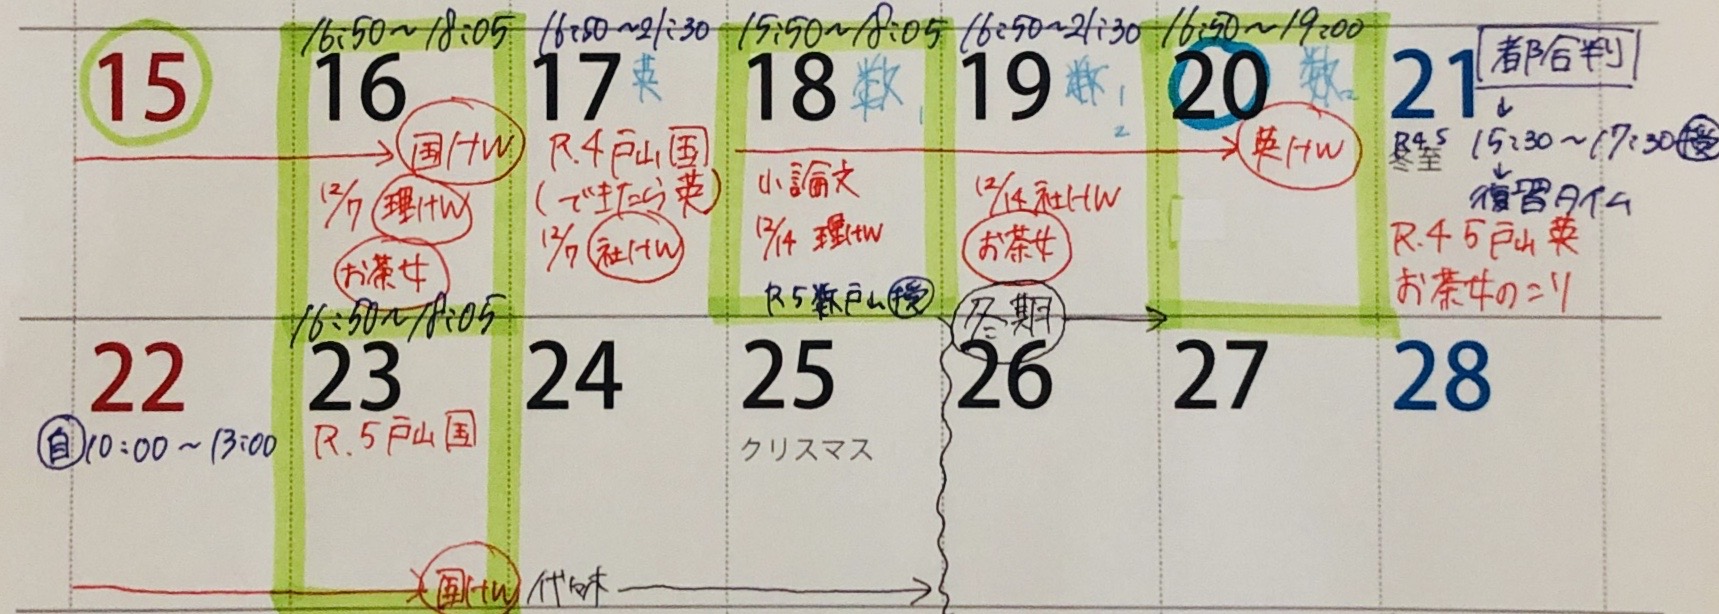 15
16:50～18:05
16
国HW
12/7 理HW
お茶女
16:50～21:30
17 英
R.4戸山国
(できたら英)
12/7 社HW
15:50～18:05
18 数1
小論文
12/14 理HW
R5数戸山授
16:50～21:30
19 数1
2
12/14 社HW
お茶女
16:50～19:00
20 数2
英HW
21 都合判
↓
R4.5
冬至
15:30～17:30授
↓
復習タイム
R.4 5戸山英
お茶女のこり
22
自10:00～13:00
16:50～18:05
23
R.5戸山国
国HW
24
代休
25
クリスマス
冬期
26
27
28